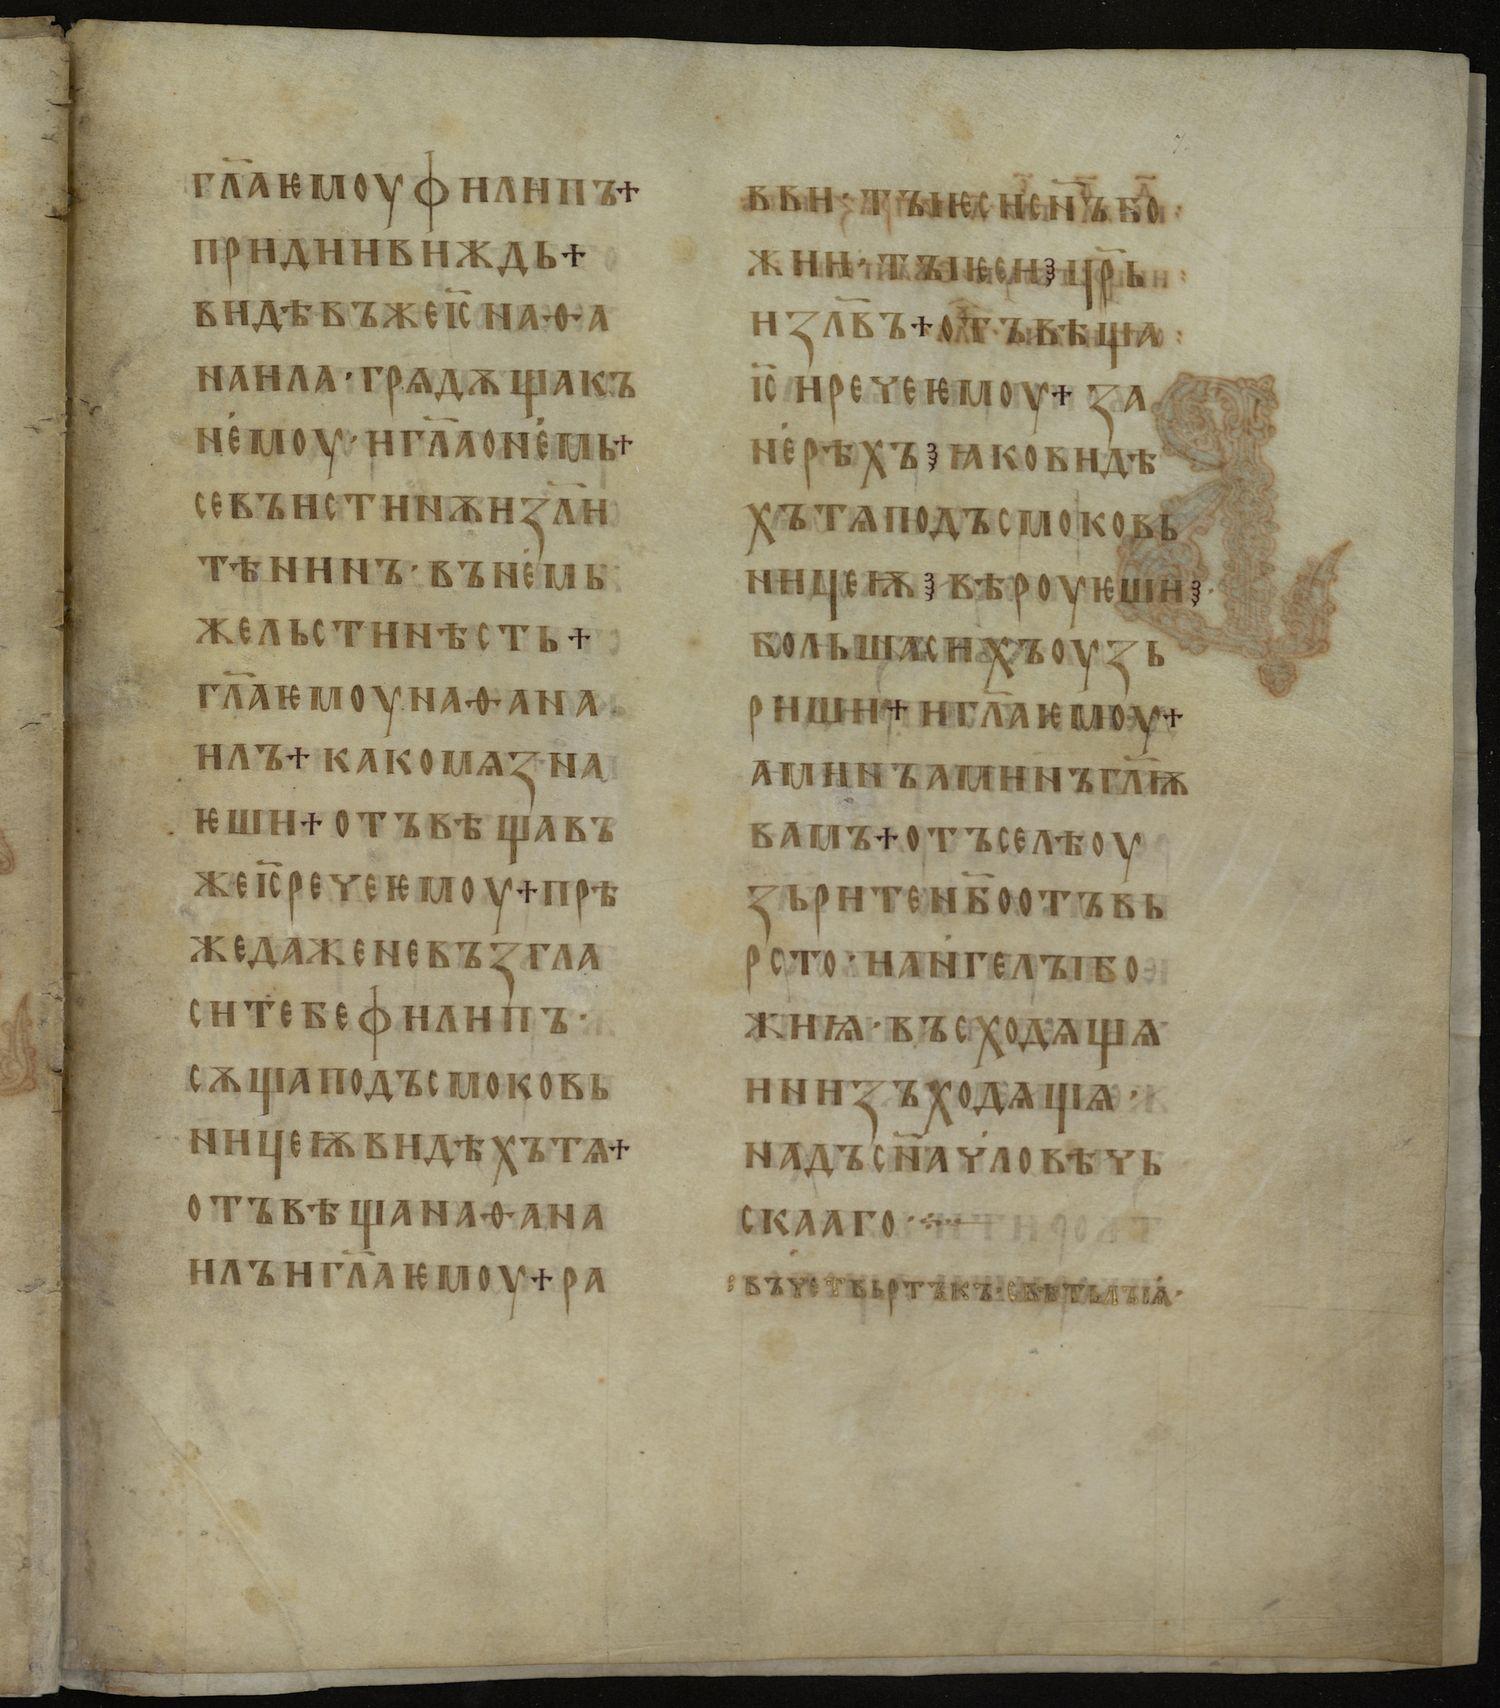 гл҃аѥмоуфилипъ+
придиивиждь+
видѣвъжеіс҃наѳа
наила·грѧдѫщакъ
н҄емоу·игл҃аон҄емь+
севъистинѫизл҃и
тѣнинъ·вън҄емь
жельстинѣсть+
гл҃аѥмоунаѳана
илъ+какомѧзна
ѥши+отъвѣщавъ
жеіс҃речеѥмоу+прѣ
жедаженевъзгла
ситебефилипъ·
сѫщаподъсмоковь
ницеѭвидѣхътѧ+
отъвѣщанаѳана
илъигл҃аѥмоу+ра
вви·тъіѥсисн҃ъбо
жии·тъіѥсиꙁцр҃ь
изл҃въ+отъвѣща
іс҃иречеѥмоу+за
н҄ерѣхъꙁ ꙗковидѣ
хътѧподъсмоковь
ницеѭꙁ вѣроуѥшиꙁ·
большасихъоузь
риши+игл҃аѥмоу+
аминъаминъгл҃ѭ
вамъ+отъселѣоу
зьритен҃боотъвь
рсто·иан҄гелъібо
жиѩ·въсходѧщѧ
инизъходѧщѧ·
надъсн҃ачловѣчь
скааго·:·—
:въчетвьртъкъ·свѣтьлъіѧ·